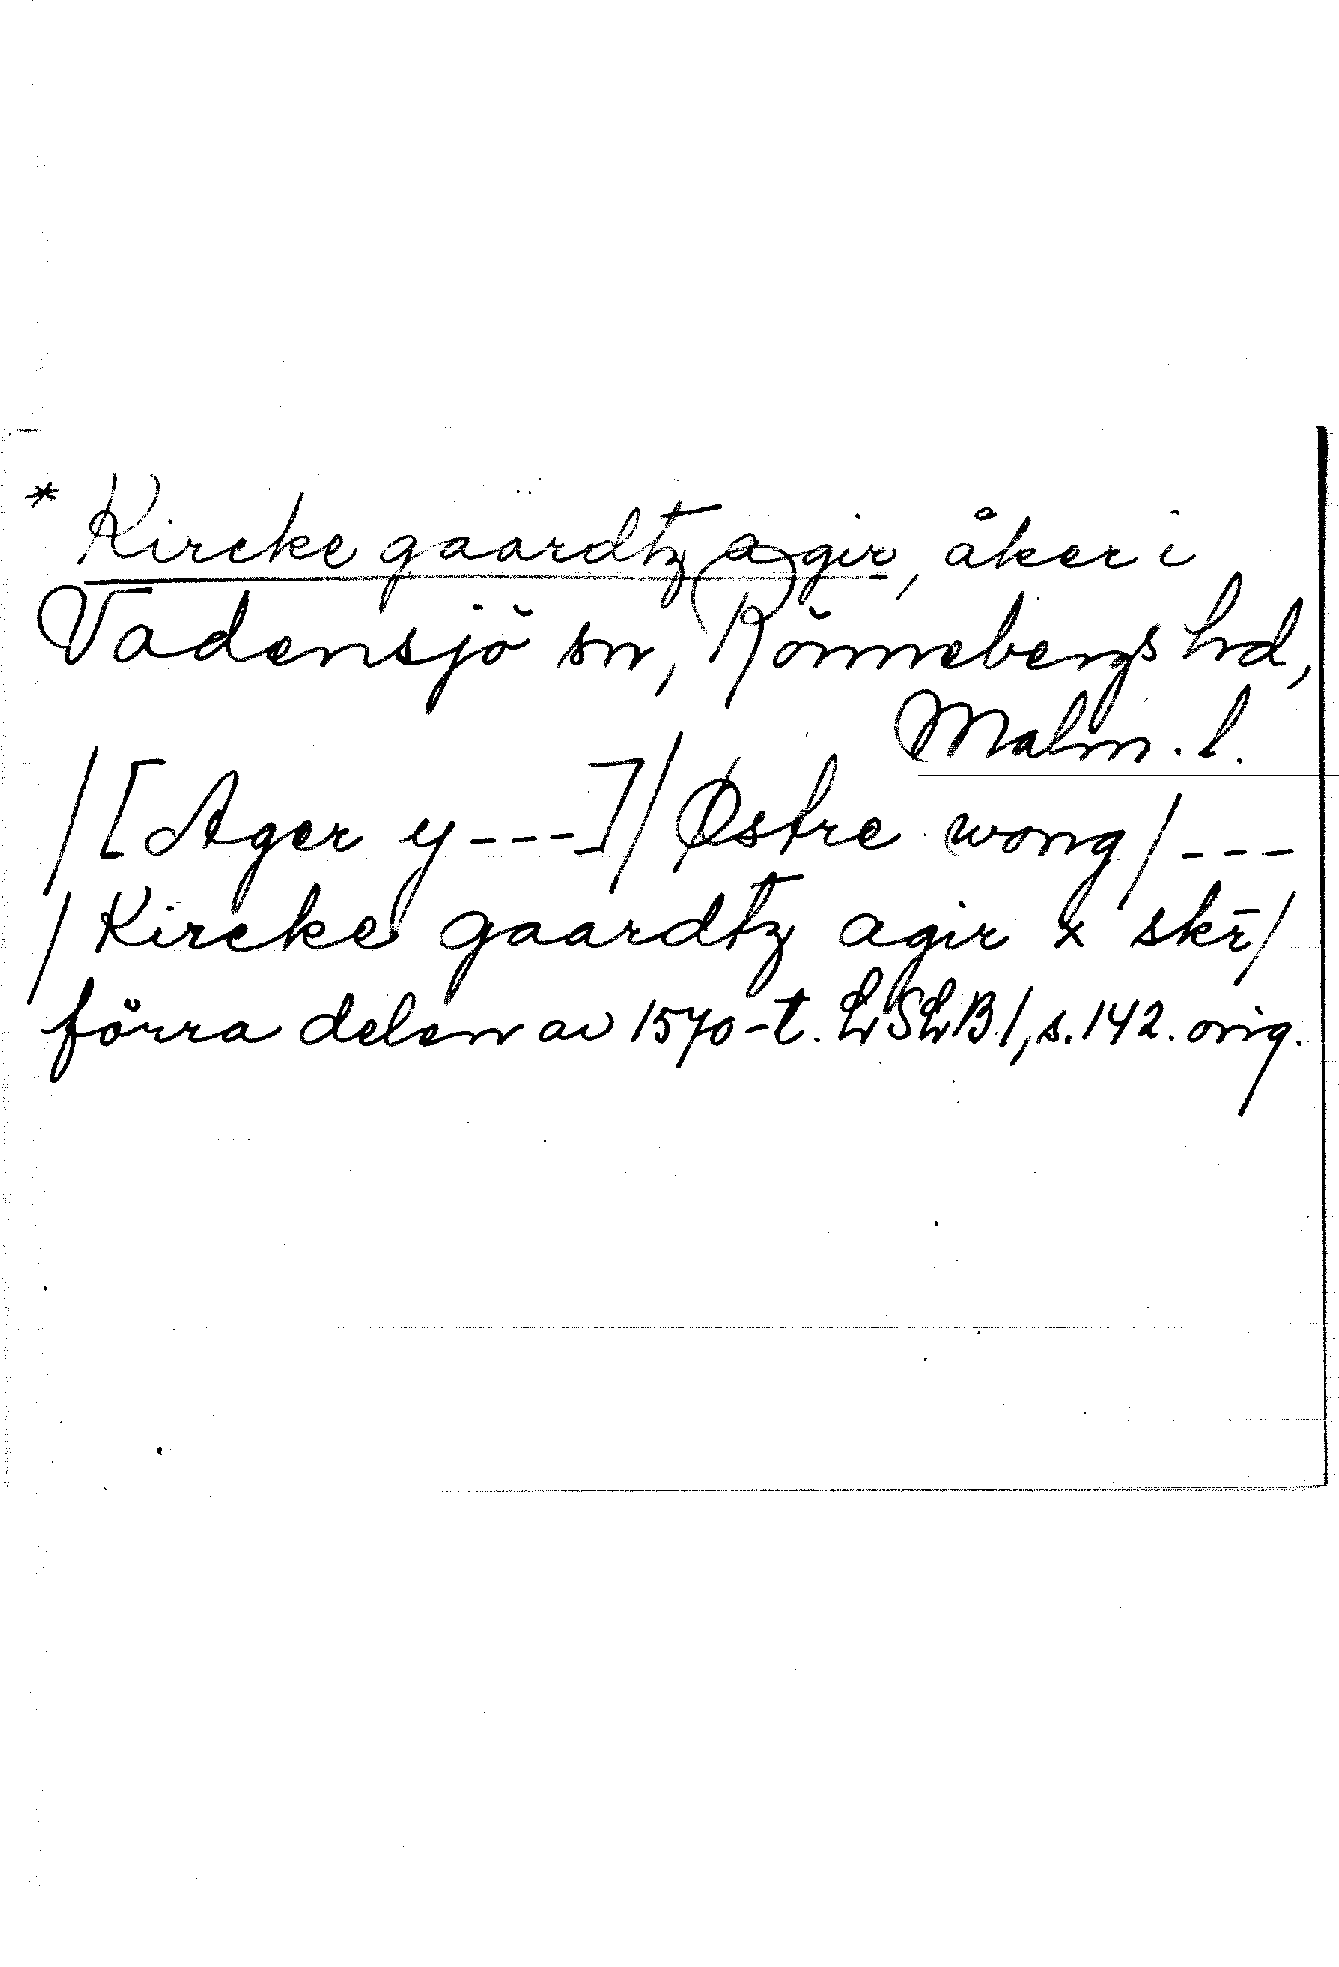 * Kircke gaardtz agir, åker i
Vadensjö sn, Rönnebergs hd,
Malm. l.
/[Ager y---]/Østre wong/---
/Kircke gaardtz agir x skr̄/
förra delen av 1570-t. LSLB 1, s. 142. orig.